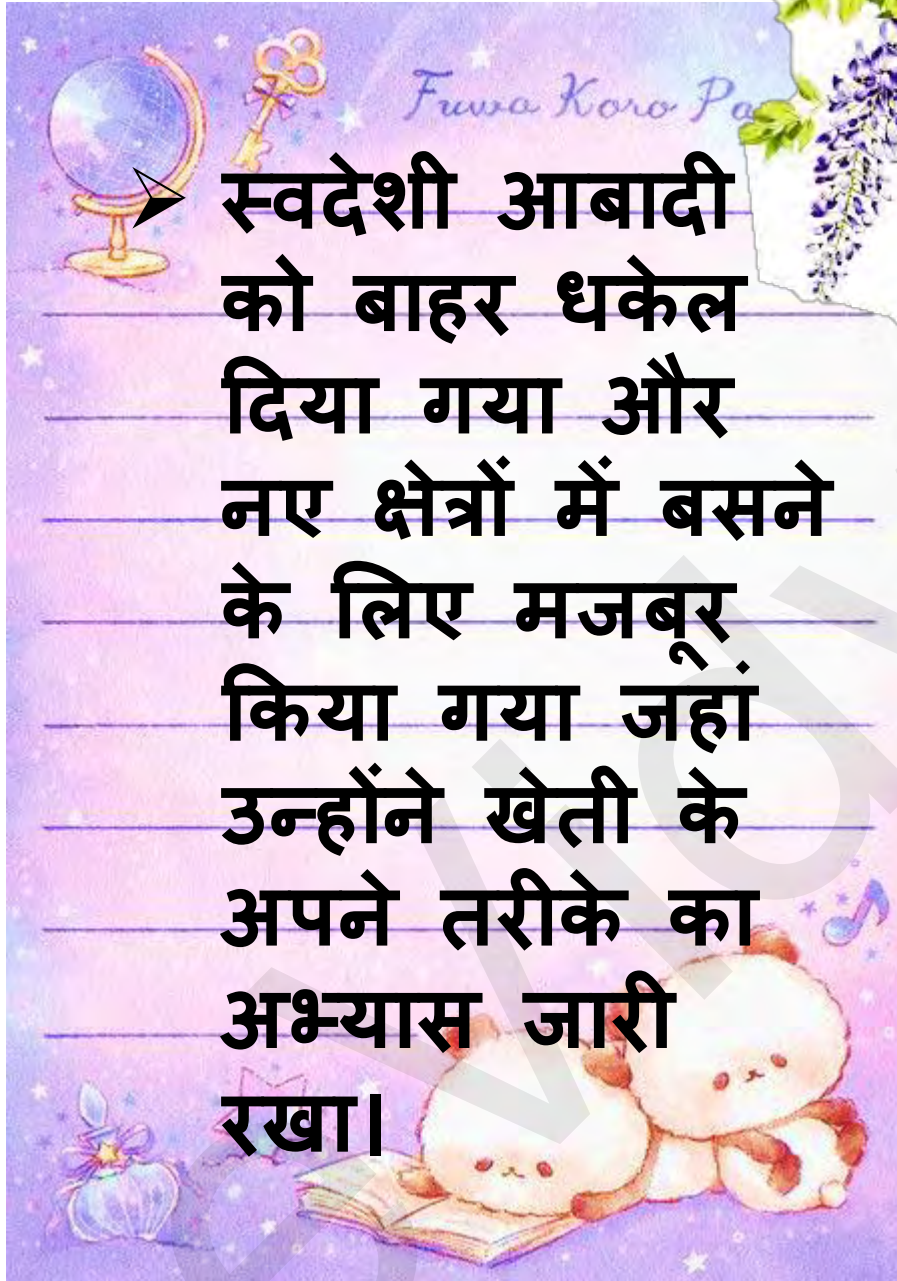 Fuwa Koro Pa
➢ स्वदेशी आबादी
को बाहर धकेल
दिया गया और
नए क्षेत्रों में बसने
के लिए मजबूर
किया गया जहां
उन्होंने खेती के
अपने तरीके का
अभ्यास जारी
रखा।